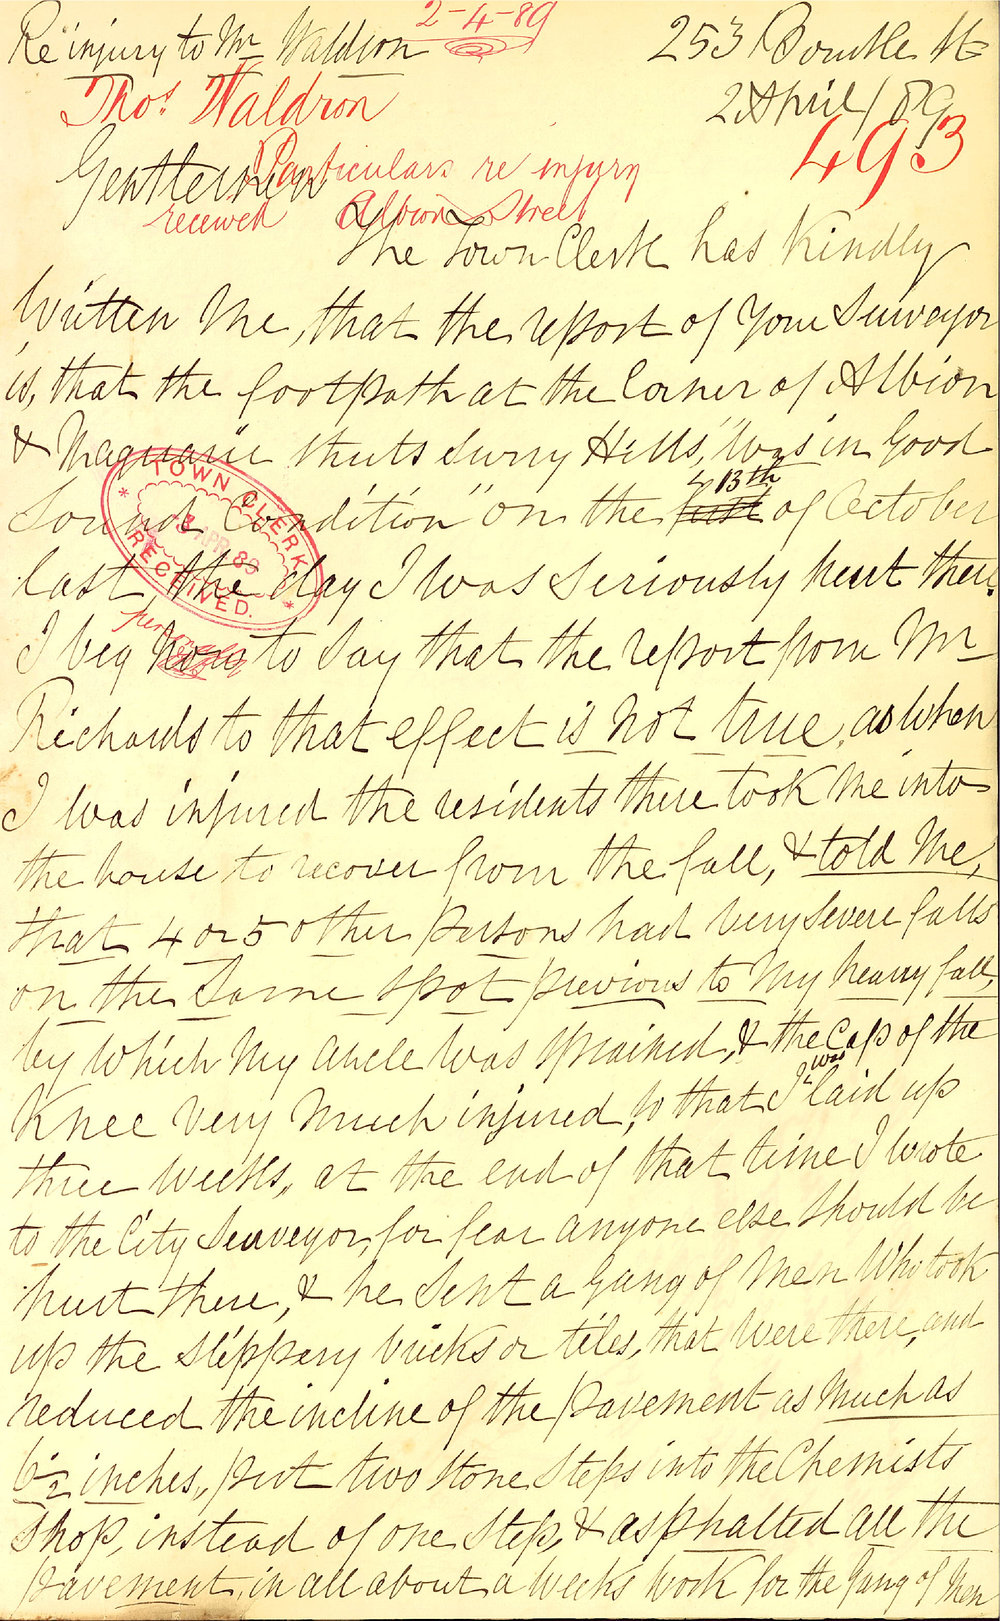 Re injury to Mr Waldron
2-4-89
253 Bourke St
Thos. Waldron
2 April / 89
493
Gentlemen
Particulars re injury
received Albion Street
The Town Clerk has Kindly
Written Me, that the report of Your Surveyor
is, that the footpath at the Corner of Albion
& Macquarie Streets Surry Hills, "Was in Good
13th
Sound Condition" on the first of October
TOWN CLERK
3 APR 89
RECEIVED.
last, the day I was Seriously hurt there.
I beg to Say that the report from Mr
Richards to that effect is Not true, as when
I was injured the residents there took Me into
the house to recover from the fall, & told Me,
that 4 or 5 other persons had Very Severe falls
on the Same spot previous to My heavy fall,
by which My Ancle Was Sprained, & the Cap of the
was
Knee Very Much injured, so that I laid up
three Weeks, at the end of that time I Wrote
to the City Surveyor, for fear anyone else Should be
hurt there, & he Sent a Gang of Men Who took
up the Slippery bricks or tiles, that Were there, and
reduced the incline of the pavement as Much as
6½ inches, put two Stone Steps into the Chemists
Shop, instead of one Step, & asphalted all the
pavement, in all about a Weeks Work for the Gang of Men